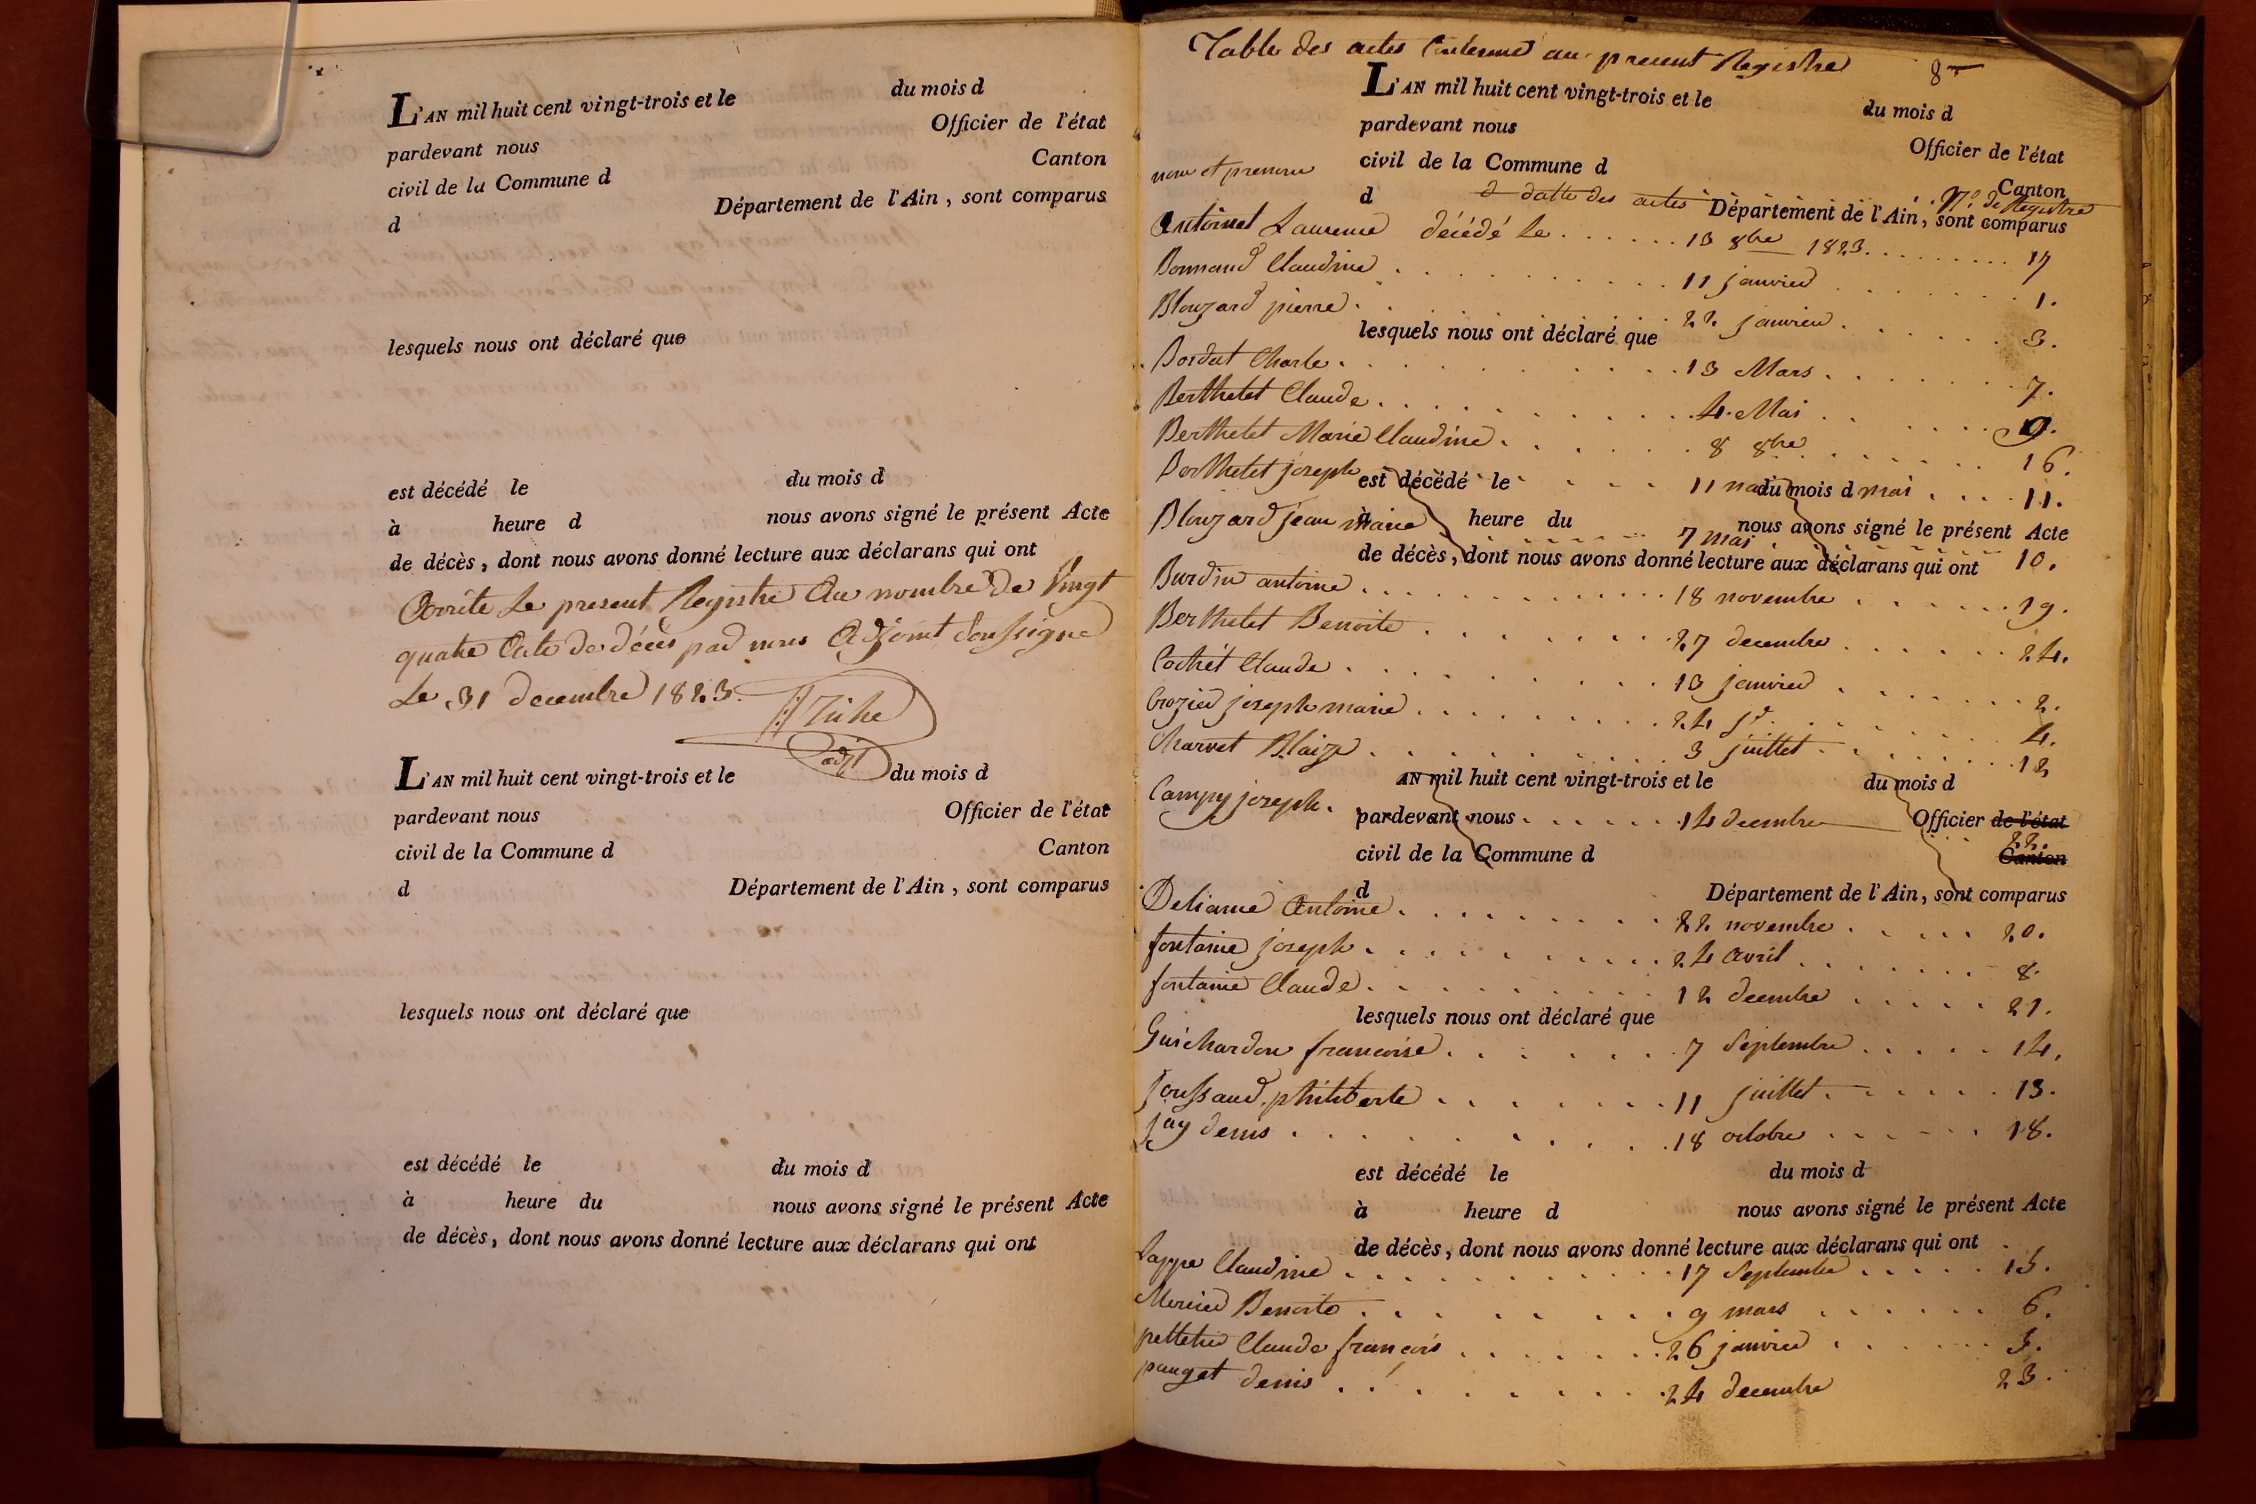 L'AN mil huit cent vingt-trois et le du mois d
pardevant nous Officier de l'état
civil de la Commune d Canton
d Département de l'Ain, sont comparus
lesquels nous ont déclaré que
est décédé le du mois d
à heure d nous avons signé le présent Acte
de décès, dont nous avons donné lecture aux déclarans qui ont
Arrête le present Registre Au nombre de Vingt
quatre Acte de décès par nous Adjoint Soussigné
Le 31 decembre 1823.
adjt
L'AN mil huit cent vingt-trois et le du mois d
pardevant nous Officier de l'état
civil de la Commune d Canton
d Département de l'Ain, sont comparus
lesquels nous ont déclaré que
est décédé le du mois d
à heure du nous avons signé le présent Acte
de décès, dont nous avons donné lecture aux déclarans qui ont
Table des actes Contenus au present Registre 8
L'AN mil huit cent vingt-trois et le du mois d
pardevant nous Officier de l'état
civil de la Commune d Canton
nom et prenom d datte des actes N.º de Registre
d Département de l'Ain, sont comparus
Antoinet Laurence décédé le 13 8bre 1823 17
Bonnand Claudine 11 janvier 1.
Blouzard pierre 22 janvier 3.
lesquels nous ont déclaré que
Bordat Charle 13 Mars 7.
Berthelet Claude 4 Mai 9.
Berthelet Marie Claudine 8 8bre 16.
Berthelet joseph 11 mai mai 11.
est décédé le du mois d
à heure du nous avons signé le présent Acte
Blouzard jean marie 7 mai 10.
de décès, dont nous avons donné lecture aux déclarans qui ont
Burdin antoine 18 novembre 19.
Berthelet Benoite 27 decembre 24.
Cochet Claude 13 janvier 2.
Crozier joseph marie 24 jd. 4.
Charvet Blaize 3 juillet 12
AN mil huit cent vingt-trois et le du mois d
Campy joseph 14 decembre 22.
pardevant nous Officier de l'état
civil de la Commune d Canton
d Département de l'Ain, sont comparus
Deliance Antoine 22 novembre 20.
fontaine joseph 24 avril 8.
fontaine Claude 12 decembre 21.
lesquels nous ont déclaré que
Guichardon francoise 7 Septembre 14.
Joussaud philiberte 11 juillet 13.
Jay denis 18 octobre 18.
est décédé le du mois d
à heure d nous avons signé le présent Acte
de décès, dont nous avons donné lecture aux déclarans qui ont
Lappe Claudine 17 Septembre 15.
Mercier Benoite 9 mars 6.
pelletier Claude françois 26 janvier 5.
pauget denis 24 decembre 23.